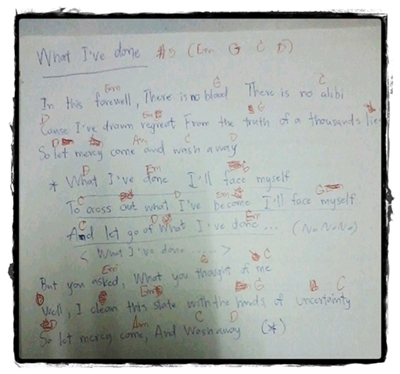 What I've done #3 (Em G C D)
Em G C
In this farewell, There is no blood There is no alibi
D Em G
Cause I've drawn regreat From the truth of a thousands lies
Am C D
So let mercy come and wash away
D Em
* What I've done I'll face myself
C D Em G
To cross out what I've become I'll face myself
C D Em
And let go of What I've done... (Na Na Na)
< What I've done ..... >
Em G C
But you asked, What you thought of me
Em G C
Well, I clean this slate with the hands of Uncertainty
D Am C D
So let mercy come, And Wash away (*)